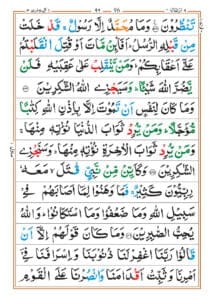 تَنْظُرُوْنَ ۝ وَمَا مُحَمَّدٌ اِلَّا رَسُوْلٌ ۚ قَدْ خَلَتْ
مِنْ قَبْلِهِ الرُّسُلُ ؕ اَفَا۠ئِنْ مَّاتَ اَوْ قُتِلَ انْقَلَبْتُمْ
عَلٰۤى اَعْقَابِكُمْ ؕ وَمَنْ يَّنْقَلِبْ عَلٰى عَقِبَيْهِ فَلَنْ
يَّضُرَّ اللّٰهَ شَيْـًٔا ؕ وَسَيَجْزِى اللّٰهُ الشّٰكِرِيْنَ ۝
وَمَا كَانَ لِنَفْسٍ اَنْ تَمُوْتَ اِلَّا بِاِذْنِ اللّٰهِ كِتٰبًا
مُّؤَجَّلًا ؕ وَمَنْ يُّرِدْ ثَوَابَ الدُّنْيَا نُؤْتِهٖ مِنْهَا ۚ
وَمَنْ يُّرِدْ ثَوَابَ الْاٰخِرَةِ نُؤْتِهٖ مِنْهَا ؕ وَسَنَجْزِى
الشّٰكِرِيْنَ ۝ وَكَاَيِّنْ مِّنْ نَّبِىٍّ قٰتَلَ ۙ مَعَهٗ
رِبِّيُّوْنَ كَثِيْرٌ ۚ فَمَا وَهَنُوْا لِمَاۤ اَصَابَهُمْ فِىْ
سَبِيْلِ اللّٰهِ وَمَا ضَعُفُوْا وَمَا اسْتَكَانُوْا ؕ وَاللّٰهُ
يُحِبُّ الصّٰبِرِيْنَ ۝ وَمَا كَانَ قَوْلَهُمْ اِلَّاۤ اَنْ
قَالُوْا رَبَّنَا اغْفِرْ لَنَا ذُنُوْبَنَا وَاِسْرَافَنَا فِىْۤ
اَمْرِنَا وَثَبِّتْ اَقْدَامَنَا وَانْصُرْنَا عَلَى الْقَوْمِ